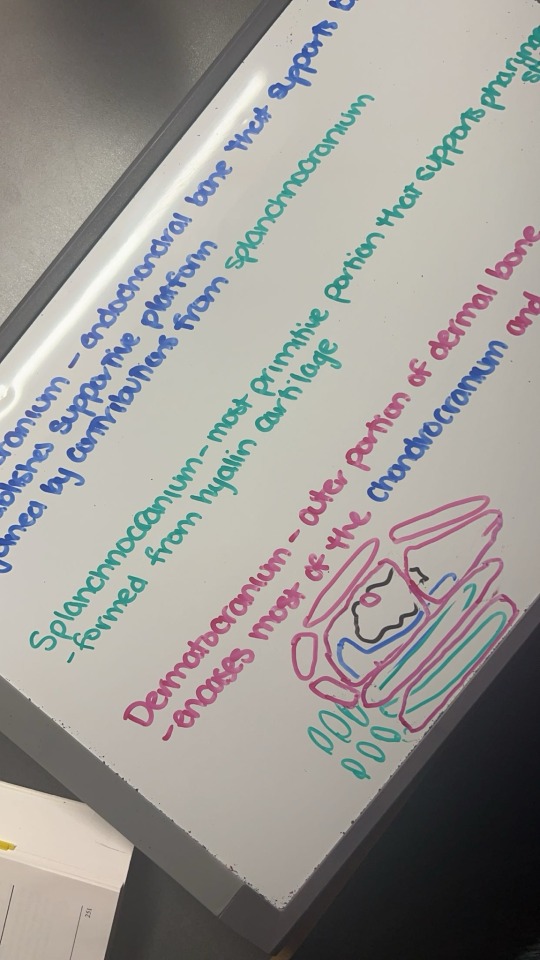 cranium - endochondral bone that supports
supportive platform
joined by contributions from splanchnocranium
Splanchnocranium - most primitive portion that supports
-formed from hyalin cartilage
Dermatocranium - outer portion of dermal bone
-encases most of the chondrocranium and
251